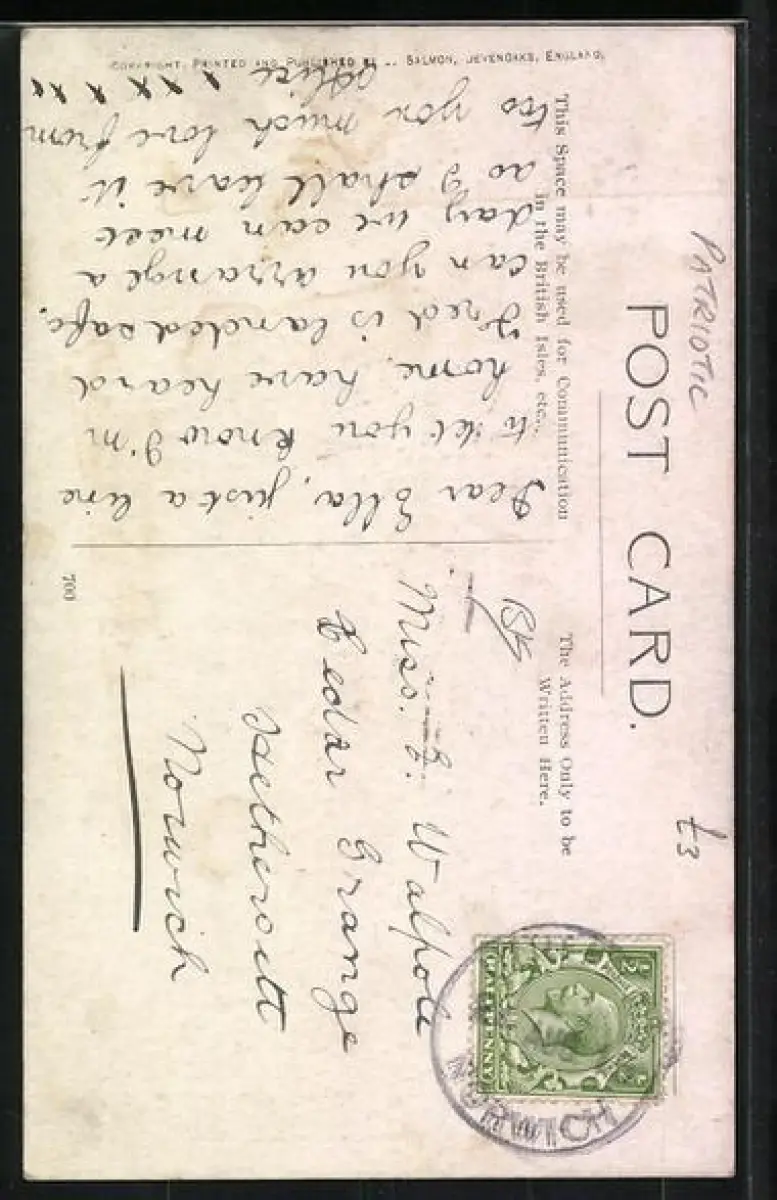 PATRIOTIC
£3
POST CARD.
This Space may be used for Communication
in the British Isles, etc.
The Address Only to be
Written Here.
Dear Ella, just a line
to let you know I'm
home. have heard
Fred is landed safe.
can you arrange a
day we can meet
as I shall leave it
too you much love from
Alice
x x x x x x
Miss. E. Walpole
Cedar Grange
Hethersett
Norwich
½
HALFPENNY
NORWICH
700
COPYRIGHT. PRINTED AND PUBLISHED BY SALMON, SEVENOAKS, ENGLAND.